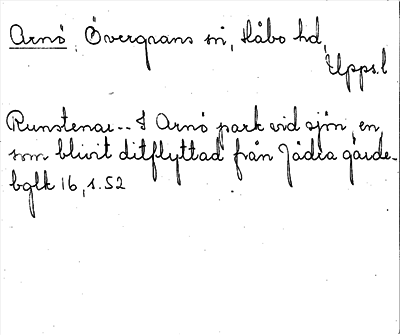 Arnö, Övergrans sn, Håbo hd,
Upps.l
Runstenar -- I Arnö park vid sjön, en
som blivit ditflyttad från Jädra gärde.
bglk 16, s. 52